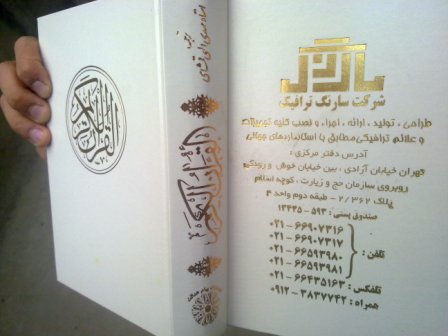 القرآن الکریم
ترجمه
استاد مهدی الهی قمشه‌ای
القرآن الکریم
سارنگ
شرکت سارنگ ترافیک
طراحی ، تولید ، ارائه ، اجراء و نصب کلیه تجهیزات
و علائم ترافیکی مطابق با استانداردهای جهانی
آدرس دفتر مرکزی :
تهران خیابان آزادی ، بین خیابان خوش و رودکی
روبروی سازمان حج و زیارت ، کوچه اسلام
پلاک ۳۶۲ / ۲ - طبقه دوم واحد ۴
صندوق پستی : ۵۹۳ - ۱۳۴۴۵
تلفن :
۰۲۱ - ۶۶۹۰۷۳۱۶
۰۲۱ - ۶۶۹۰۷۳۱۷
۰۲۱ - ۶۶۵۹۳۹۸۰
۰۲۱ - ۶۶۵۹۳۹۸۱
تلفکس : ۶۶۴۳۵۱۶۳ - ۰۲۱
همراه : ۳۸۳۷۷۴۲ - ۰۹۱۲